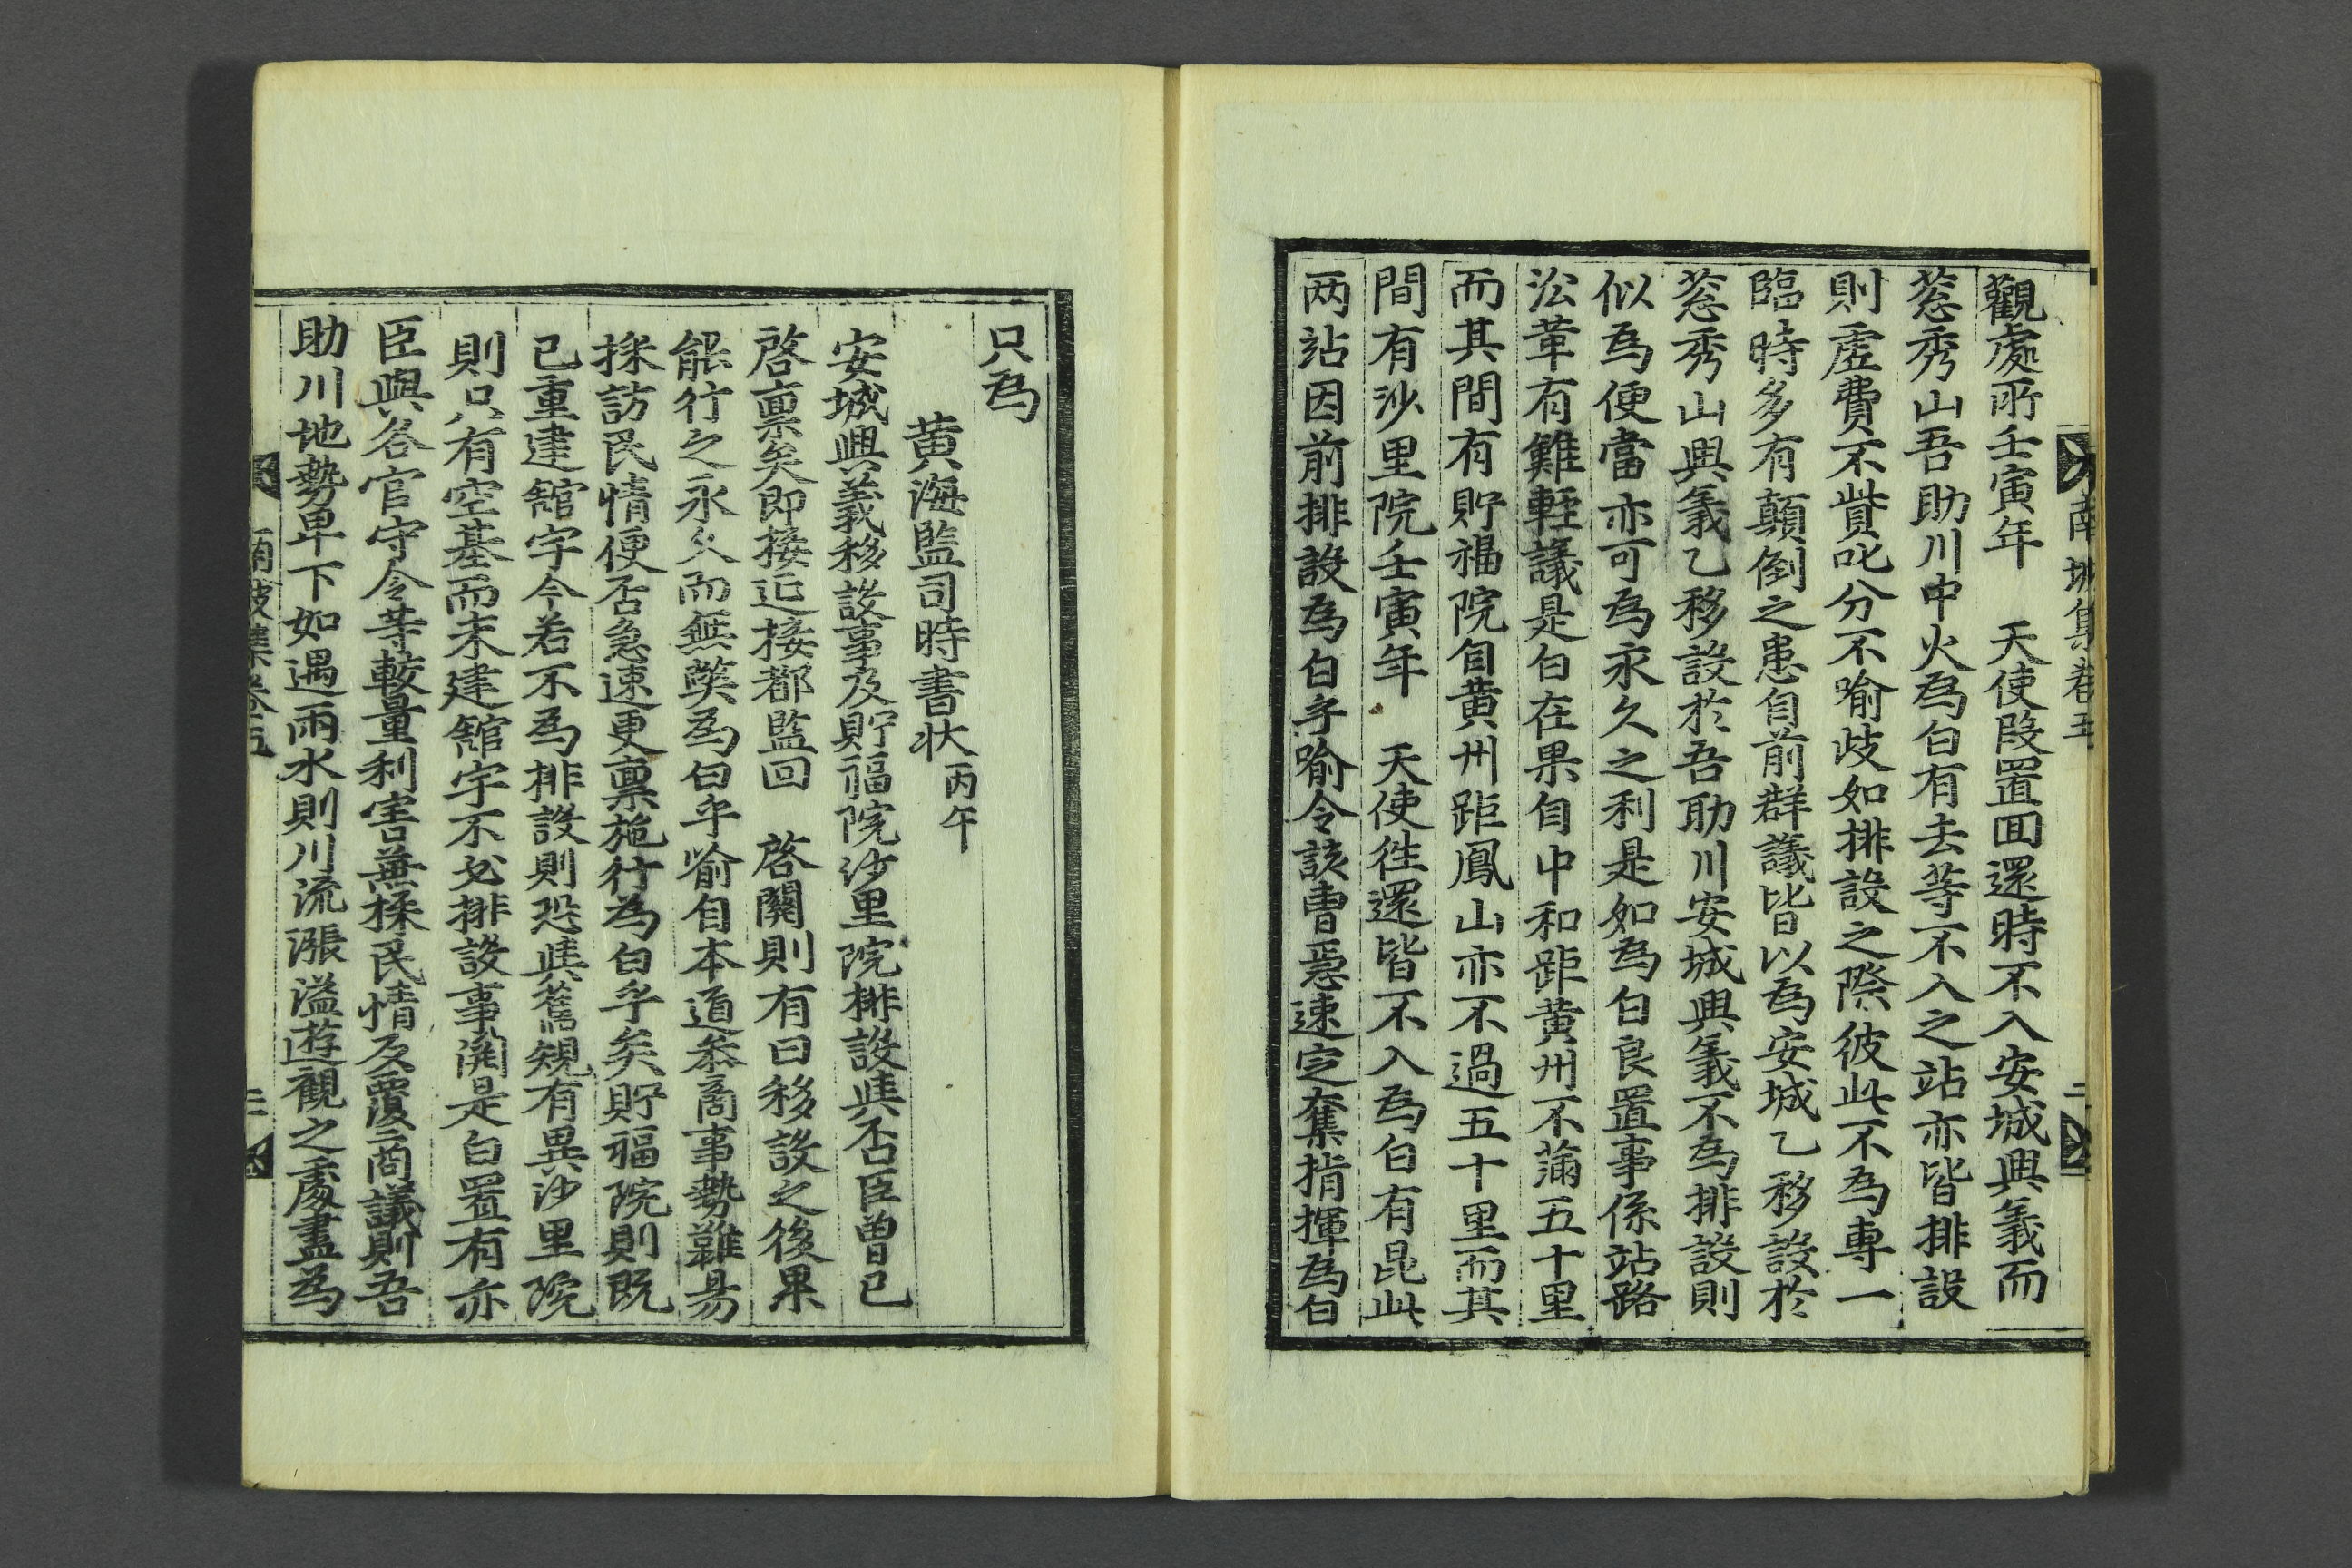 南坡集卷五
二
觀處所壬寅年 天使叚置回還時不入安城興義而
葱秀山吾助川中火爲白有去等不入之站亦皆排設
則虛費不貲叱分不喩歧如排設之際彼此不爲專一
臨時多有顛倒之患自前群議皆以爲安城乙移設於
葱秀山興義乙移設於吾助川安城興義不爲排設則
似爲便當亦可爲永久之利是如爲白良置事係站路
㳂革有難輕議是白在果自中和距黃州不滿五十里
而其間有貯福院自黃州距鳳山亦不過五十里而其
間有沙里院壬寅年 天使徃還皆不入爲白有昆此
两站因前排設爲白乎喩令該曹急速㝎奪指揮爲白
只爲
黃海監司時書狀丙午
安城興義移設事及貯福院沙里院排設與否臣曾已
啓稟矣即接延接都監回 啓關則有曰移設之後果
能行之永久而無獘爲白乎喩自本道叅商事勢難易
採訪民情便否急速更稟施行爲白乎矣貯福院則既
已重建舘宇今若不爲排設則恐與舊䂓有異沙里院
則只有空基而未建舘宇不必排設事関是白置有亦
臣與各官守令等較量利害兼採民情反覆商議則吾
助川地勢卑下如遇雨水則川流漲溢遊觀之處盡爲
南坡集卷五
二